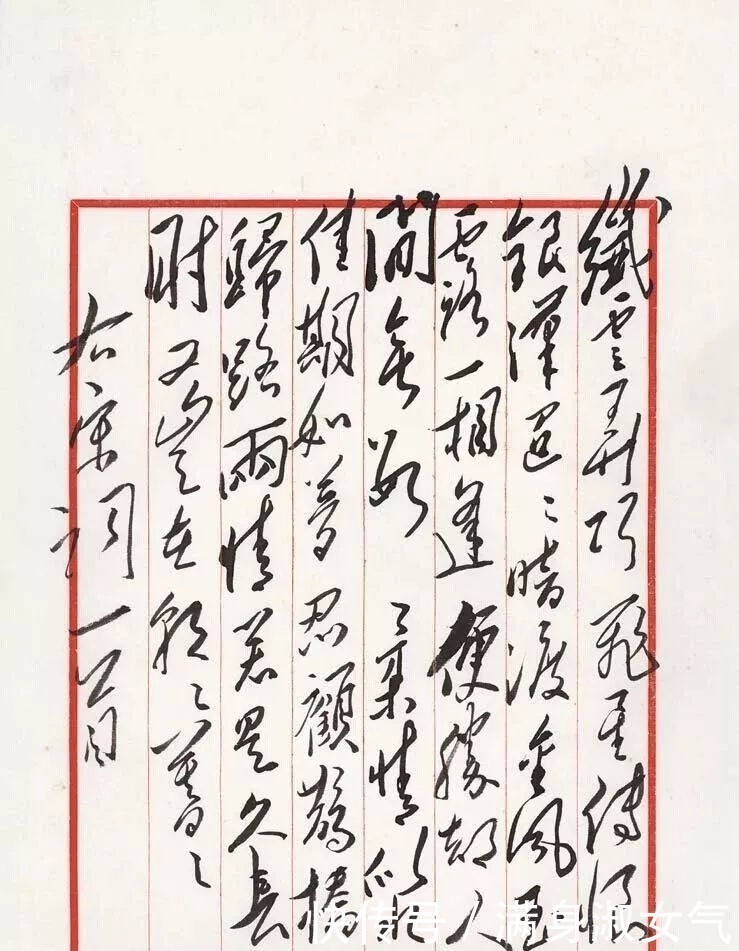 纖雲弄巧飛星傳恨
銀漢迢〻暗渡金風玉
露一相逢便勝却人
間無數柔情似水
佳期如夢忍顧鵲橋
歸路兩情若是久長
時又豈在朝〻暮〻
右宋詞一首
快传号 / 满身淑女气